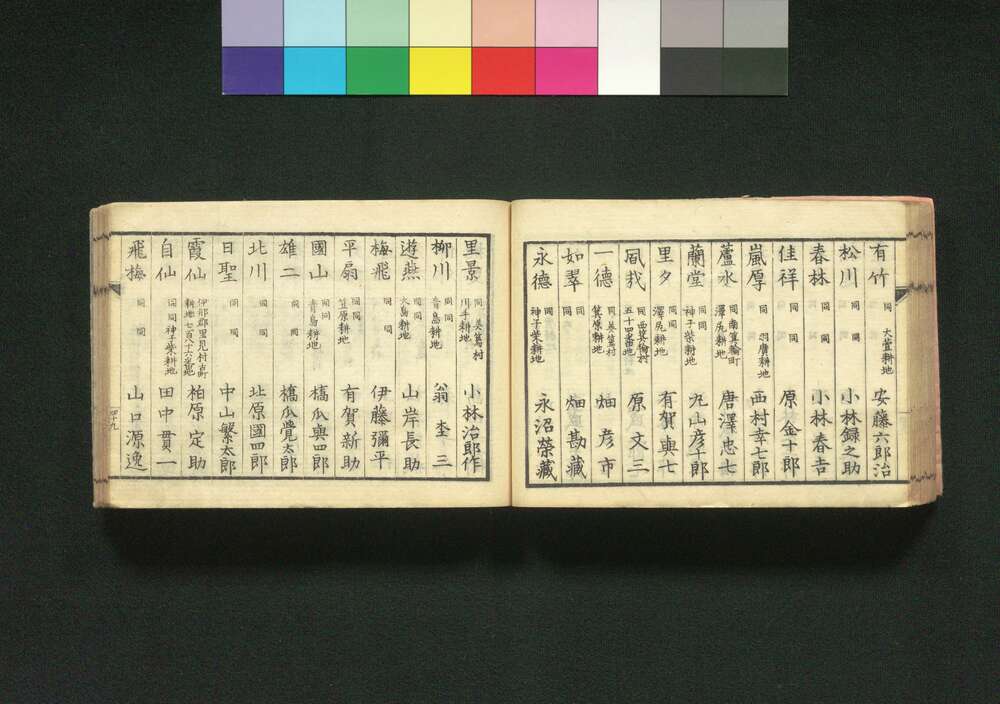 有竹 同 大萱耕地 安藤六郎治
松川 同 同 小林録之助
春林 同 同 小林春吉
佳祥 同 同 原金十郎
嵐厚 同 羽廣耕地 西村幸七郎
蘆水 同南箕輪町 澤尻耕地 唐澤忠七
蘭堂 同同 神子柴耕地 丸山彦千郎
里夕 同同 澤尻耕地 有賀與七
同西箕輪村 五十四番地 原文三
一德 同美篶村 箕原耕地 畑彦市
如翠 同 同 畑勘藏
永德 同 神子柴耕地 永沼榮藏
里景 同美篶村 川手耕地 小林治郎作
柳川 同同 青島耕地 翁杢三
遊燕 同同 大島耕地 山岸長助
梅飛 同 同 伊藤彌平
平扇 同同 笠原耕地 有賀新助
國山 同同 青島耕地 橋爪與四郎
雄二 同 同 橋爪覺太郎
北川 同 同 北原國四郎
日聖 同 同 中山繁太郎
霞仙 伊那郡里見村 耕地七百八十六番地 柏原定助
自仙 同同神子柴耕地 田中貫一
飛梅 同 同 山口源逸
四十九